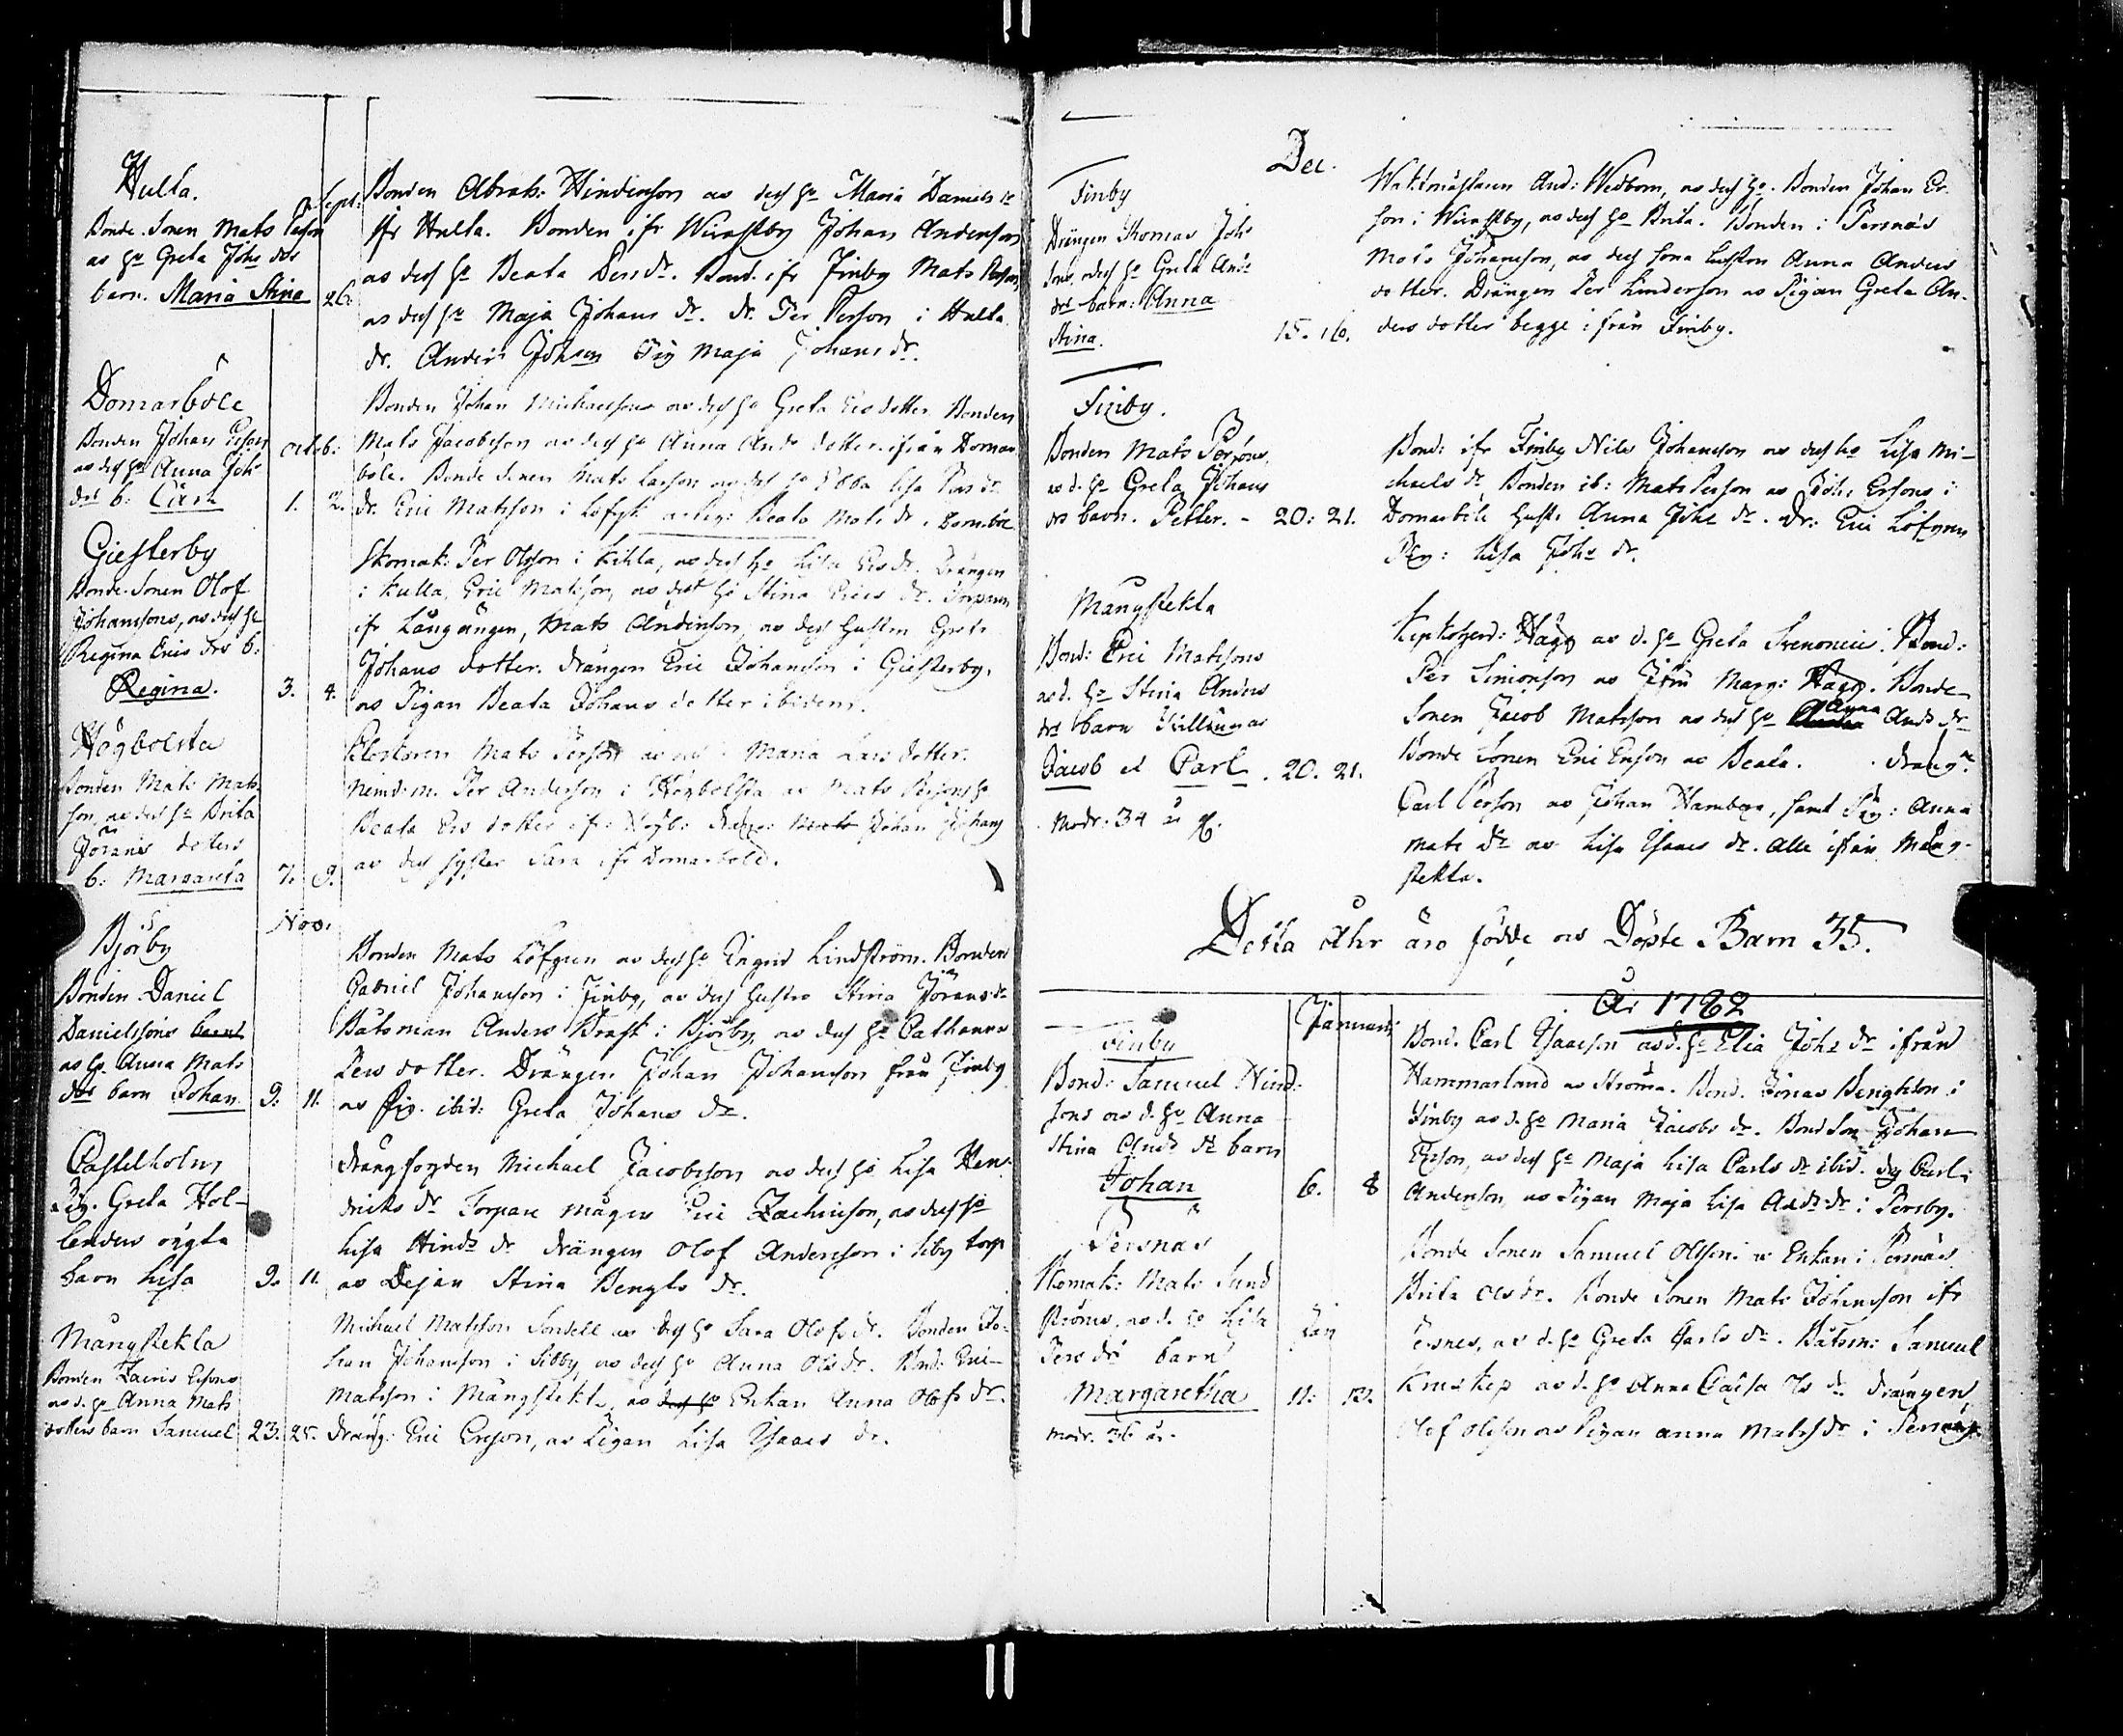 Hulta.
Bonde Sonen Mats Persson
as hu Greta Johs dtrs
barn. Maria Stina
Sept:
26.
Bonden Abrah: Hindersson as dess hu Maria Daniels dr
ifr Hulta. Bonden ifr Wivastby Johan Andersson
as dess hu Beata Persdr. Bond. ifr Finby Mats Persson
as dess hu Maja Johans dr. dr. Per Persson i Hulta
dr. Anders Johsson Pig Maja Johans dr.
Domarböle
Bonden Johan Ersson
as dess hu Anna Johs
drs b: Carl
Octob:
1. 2.
Bonden Johan Michaelsson as dess hu Greta Ersdotter. Bonden
Mats Jacobsson as dess hu Anna Ands dotter ifrån Domar
böle. Bonde Sonen Mats Larsson as dess hu Ebba Lisa Pers dr
dr. Eric Matsson i Beata Mats dr. Domböle
Giesterby
Bonde Sonen Olof
Johanssons, as dess hu
Regina Erics drs b:
Regina.
3. 4.
Skomak: Per Olsson i Kihla, as dess hu Lisa Ersdr. Drängen
i Kulla, Eric Matsson, as dess hu Stina Erics dr. Torparen
ifr Långängen, Mats Andersson, as dess hustru Greta
Johans dotter. drängen Eric Johansson i Giesterby,
as Pigan Beata Johans dotter ibidem.
Högbolsta
Bonden Mats Mats
son, as dess hu Brita
Jörans dotters
b: Margareta
7. 9.
Mats Persson Maria Lars dotter.
Nämdem. Per Andersson i Högbolsta as Mats Perssons hu
Beata Ers dotter ifr Högb: dräng: Johan Johans
as dess syster Sara ifr Domarböle.
Nov.
Björby
Bonden Daniel
Danielssons
as hu Anna Mats
drs barn Johan
9. 11.
Bonden Mats Löfgren as dess hu Ingrid Lindström. Bonden
Gabriel Johansson i Finby, as dess hustru Stina Jörans dr
Båtsman Anders Brask i Björby, as dess hu Catharina
Pers dotter. Drängen Johan Johansson från Finby
as Pig. ibid: Greta Johans dr.
Castelholm
Pig. Greta Hol-
lenders oägta
barn Lisa
9. 11.
Drängfogden Michael Jacobsson as dess hu Lisa Hen-
driks dr Torpare mågen Eric Zachrisson, as dess hu
Lisa Hinds dr drängen Olof Andersson i Siby torp
as Dejan Stina Bengts dr.
Mångstekta
Bonden Lauris Erssons
as d. hu Anna Mats
dotters barn Samuel
23. 25.
Michael Matsson Sondell as dess hu Sara Olofs dr. Bonden Jo-
han Johansson i Sibby as dess hu Anna Ols dr. Bond: Eric
Matsson i Mångstekt, as dess hu Enkan Anna Olofs dr.
dräng: Eric Ersson, as Pigan Lisa Isaacs dr.
Dec.
Finby
Drängen Thomas Johs
sons, as dess hu Greta Ands
drs barn: Anna
Stina.
15. 16.
Waktmästaren And: Wedbom, as dess hu. Bonden Johan Er
son i Wivastby, as dess hu Brita. Bonden i Persnäs
Mats Johansson, as dess sona hustru Anna Anders
dotter. Drängen Per Hindersson as Pigan Greta An-
ders dotter begge ifrån Finby.
Finby.
Bonden Mats Perssons,
as d. hu Greta Johans
drs barn. Petter. - 20: 21.
Bond: ifr Finby Nils Johansson as dess hu Lisa Mi-
chaels dr Bonden ib: Mats Persson as Johs Erssons i
Domarböle hustr. Anna Johs dr. Dr: Eric Löfgren
Pig: Lisa Johs dr.
Mångstekta
Bond: Eric Matssons
as d. hu Stina Anders
drs barn Tillingar
Jacob et Carl. 20. 21.
Modr: 34 år
Hägg as d. hu Greta Svenonius. Bond:
Per Simonsson as Jfru Marg: Hägg. Bonde
Sonen Jacob Matsson as dess hu Anna Ands dr
Bonde Sonen Eric Ersson as Beata. dräng:
Carl Persson as Johan Hamberg, samt Pig: Anna
Mats dr as Lisa Isaacs dr. Alle ifrån Mång-
stekta.
Detta åhr äro födde as Döpte Barn 35.
År 1782
Januarii
Finby
Bond: Samuel Hind:
sons as d. hu Anna
Stina Ands dr barn
Johan
6. 8
Bond. Carl Isaacsson as d. hu Elia Johs dr ifrån
Hammarland as Ströma. Bond. Jonas Bengtson i
Finby as d. hu Maria Jacobs dr. Bond Son Johan
Ersson, as dess hu Maja Lisa Carls dr ibid. Carl
Andersson, as Pigan Maja Lisa Ands dr i Persby.
Persnäs
Skomak: Mats Sund
ströms, as d. hu Lisa
Pers drs barn
Margaretha
modr. 36 år.
Jan
11: 13.
Bonde Sonen Samuel Olsson as Enkan i Persnäs
Brita Olsdr. Bonde Sonen Mats Johansson ifr
Persnes, as d. hu Greta Carls dr. Båtsm: Samuel
Kruskep as d. hu Anna Caisa dr drängen,
Olof Olsson as Pigan Anna Mats dr i Persnäs.